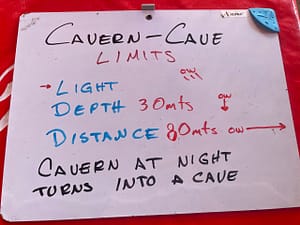 CAVERN-CAVE
LIMITS
→ LIGHT ow
DEPTH 30mts ow ↓
DISTANCE 80mts ow →
CAVERN AT NIGHT
TURNS INTO A CAVE